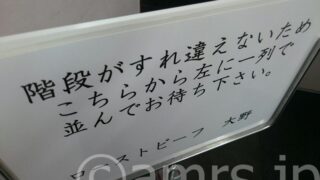 階段がすれ違えないため
こちらから左に一列で
並んでお待ち下さい。
ローストビーフ 大野
©amrs.jp